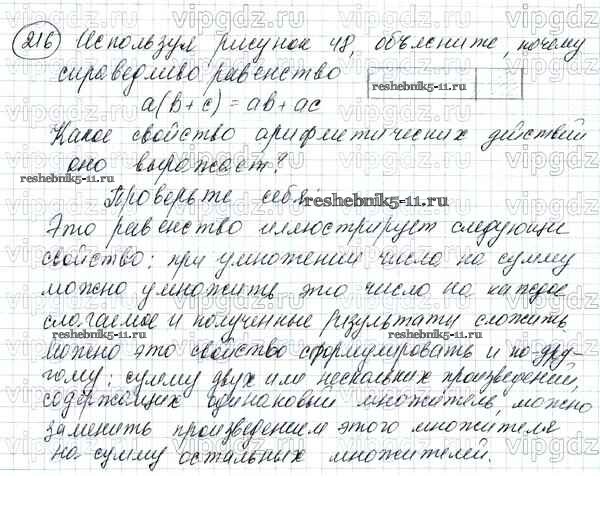 216 Используя рисунок 48, объясните, почему
справедливо равенство
reshebnik5-11.ru
a(b+c)=ab+ac
Какое свойство арифметических действий
оно выражает?
reshebnik5-11.ru
Проверьте себя:
reshebnik5-11.ru
Это равенство иллюстрирует следующие
свойство: при умножении числа на сумму
можно умножить это число на каждое
слагаемое и полученные результаты сложить
reshebnik5-11.ru
reshebnik5-11.ru
можно это свойство сформулировать и по-дру-
гому: сумму двух или нескольких произведений,
содержащих одинаковый множитель, можно
заменить произведением этого множителя
на сумму остальных множителей.
reshebnik5-11.ru
reshebnik5-11.ru